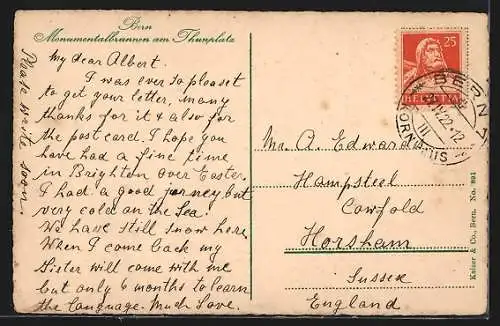 Bern
Monumentalbrunnen am Thunplatz
Please write soon.
My dear Albert.
I was ever so pleaset
to get your letter, many
thanks for it & also for
the post card. I hope you
have had a fine time
in Brighton over Easter.
I had a good jorney but
very cold on the Sea.
We have still snow here
When I come back my
Sister will come with me
but only 6 months to learn
the language. Much Love.
25
HELVETIA
BERN
KORNHAUS
III
Mr. A. Edwards
Hampsteel
Cowfold
Horsham
Sussex
England
Kaiser & Co., Bern. No. 891